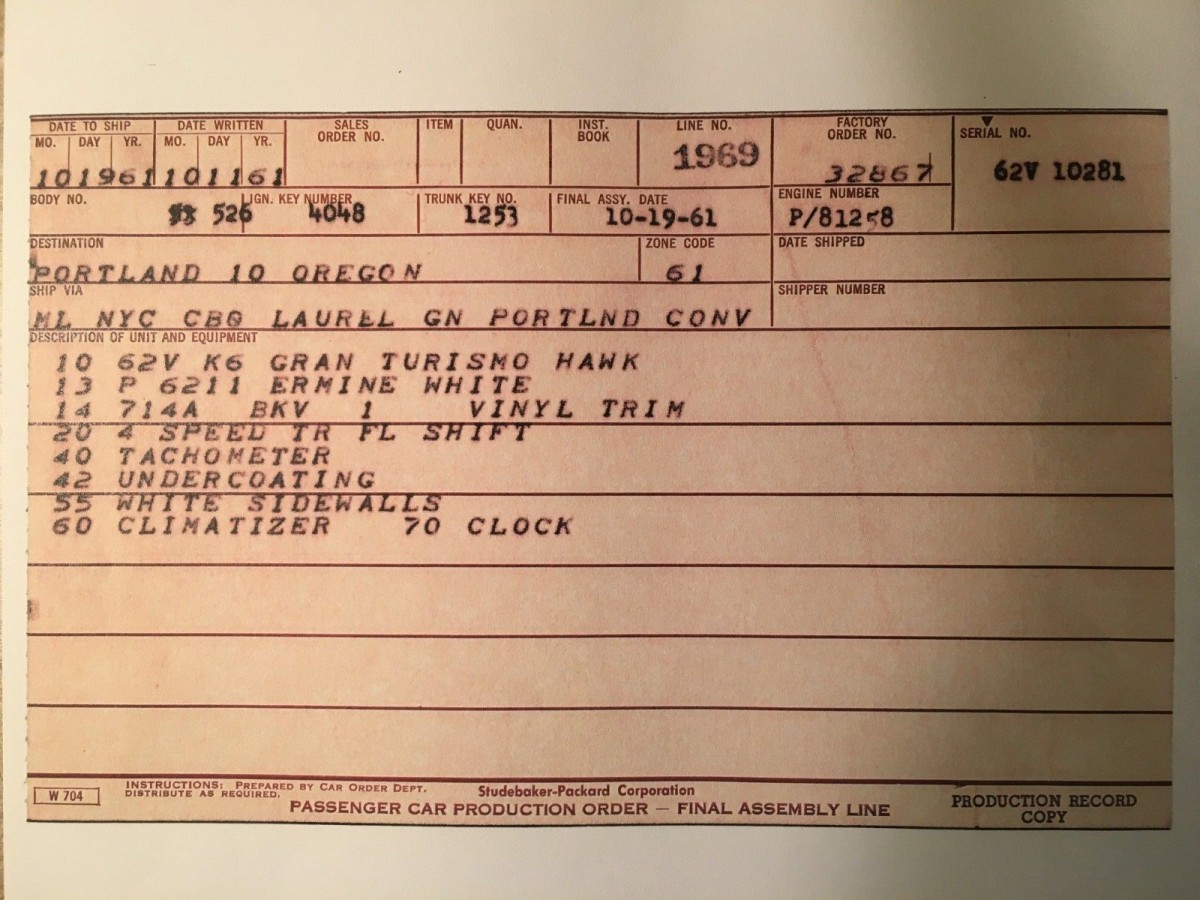 DATE TO SHIP DATE WRITTEN SALES ORDER NO. ITEM QUAN. INST. BOOK LINE NO. FACTORY ORDER NO. SERIAL NO.
MO. DAY YR. MO. DAY YR.
101961 101161 1969 32867 62V 10281
BODY NO. IGN. KEY NUMBER TRUNK KEY NO. FINAL ASSY. DATE ENGINE NUMBER
526 4048 1253 10-19-61 P/81258
DESTINATION ZONE CODE DATE SHIPPED
PORTLAND 10 OREGON 61
SHIP VIA SHIPPER NUMBER
ML NYC CBQ LAUREL GN PORTLND CONV
DESCRIPTION OF UNIT AND EQUIPMENT
10 62V K6 GRAN TURISMO HAWK
13 P 6211 ERMINE WHITE
14 714A BKV 1 VINYL TRIM
20 4 SPEED TR FL SHIFT
40 TACHOMETER
42 UNDERCOATING
55 WHITE SIDEWALLS
60 CLIMATIZER 70 CLOCK
W 704
INSTRUCTIONS: PREPARED BY CAR ORDER DEPT.
DISTRIBUTE AS REQUIRED.
Studebaker-Packard Corporation
PASSENGER CAR PRODUCTION ORDER — FINAL ASSEMBLY LINE
PRODUCTION RECORD
COPY